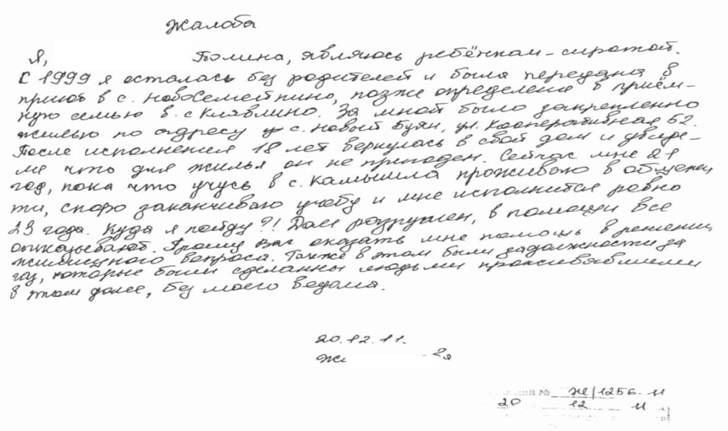 Жалоба
Я, Полина, являюсь ребёнком-сиротой.
С 1999 я осталась без родителей и была передана в
приют в с. Новосемейкино, позже определена в приём-
ную семью в с Клявлино. За мной было закрепленно
жильё по адресу с. Новый Буян, ул. Кооперативная 62.
После исполнения 18 лет вернулась в свой дом и увиде-
ла что для жилья он не пригоден. Сейчас мне 21
год, пока что учусь в с. Камышла проживаю в общежи
тии, скоро заканчиваю учёбу и мне исполнится ровно
23 года. Куда я пойду?! Дом разрушен, в помощи все
отказывают. Прошу вас оказать мне помощь в решении
жилищного вопроса. Также в этом были задолжности за
газ, которые были сделанны людьми проживавшими
в этом доме, без моего ведома.
20.12.11.
Ж/1256 11
20 12 11